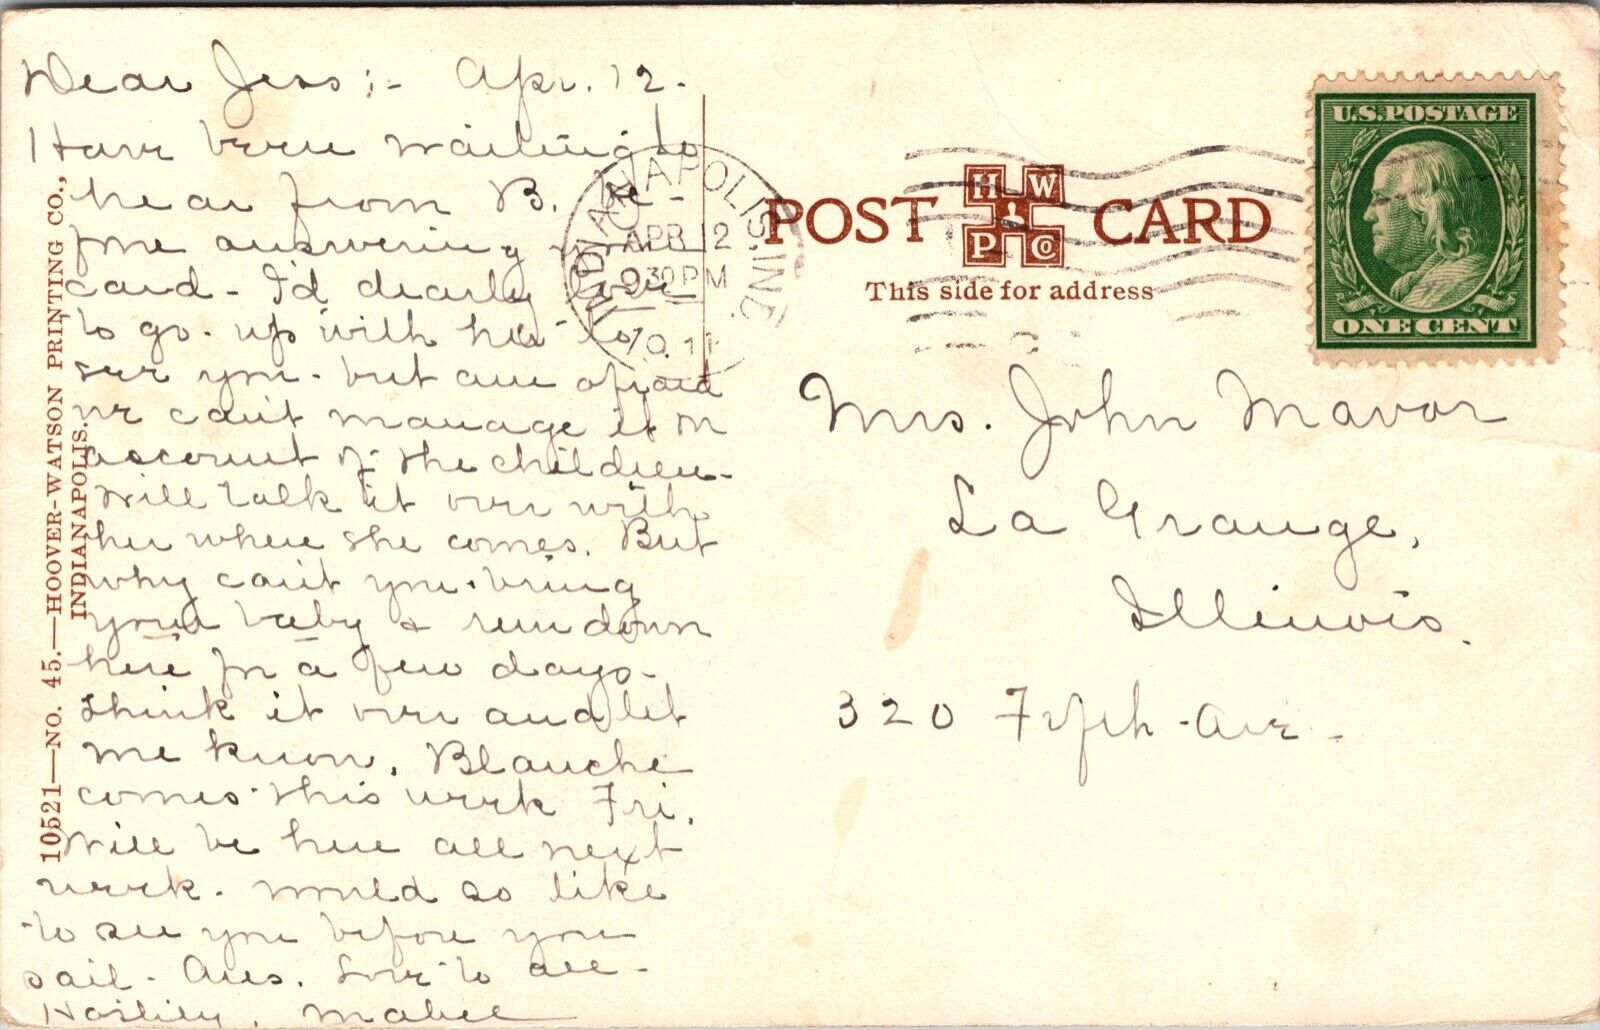 Dear Jess:- Apr. 12.
Have been waiting to
hear from B. be-
fore answering your
card - I'd dearly love
to go up with her to
see you - but am afraid
we can't manage it on
account of the children -
Will talk it over with
her when she comes. But
why can't you bring
your baby & run down
here for a few days -
Think it over and let
me know. Blanche
comes this week Fri.
Will be here all next
week. Would so like
to see you before you
sail - Ans. Love to all -
Hastily, Mabel
10521—NO. 45.—HOOVER-WATSON PRINTING CO.,
INDIANAPOLIS.
INDIANAPOLIS, IND.
APR 12
9 30 PM
1911
POST CARD
H W
P Co
This side for address
U.S. POSTAGE
ONE CENT
Mrs. John Mavor
La Grange,
Illinois.
320 Fifth - Ave -